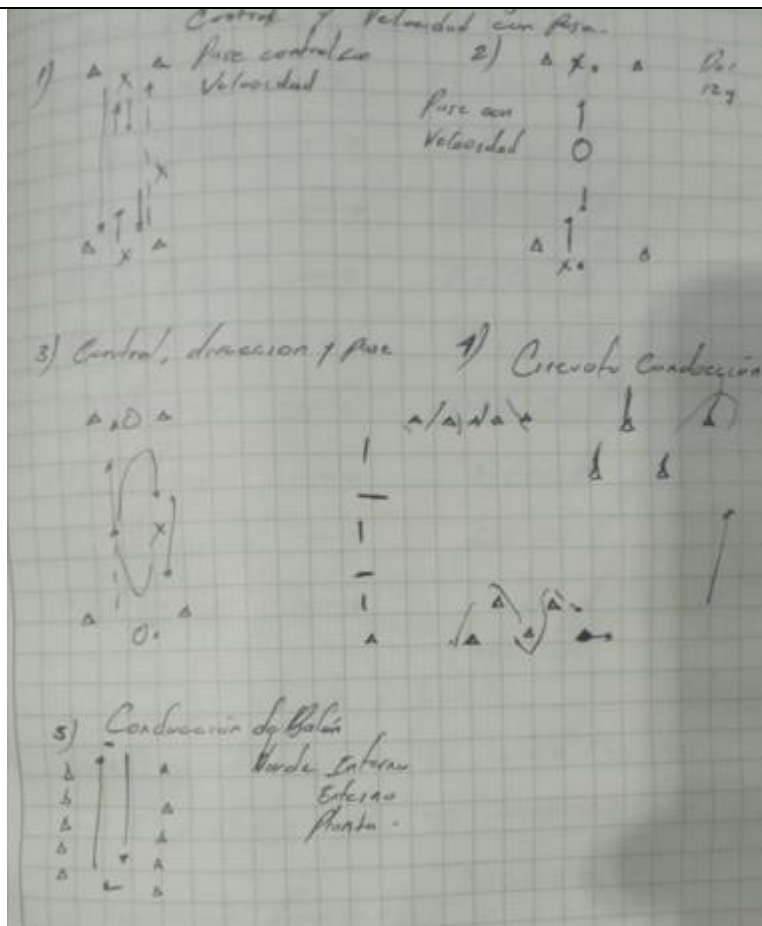 Control y Velocidad con Pase.
1) Pase control con
Velocidad
2)
Pase con
Velocidad
3) Control, direccion y pase
4) Circuito Conducción
5) Conducción de Balón
Borde Interno
Externo
Planta.